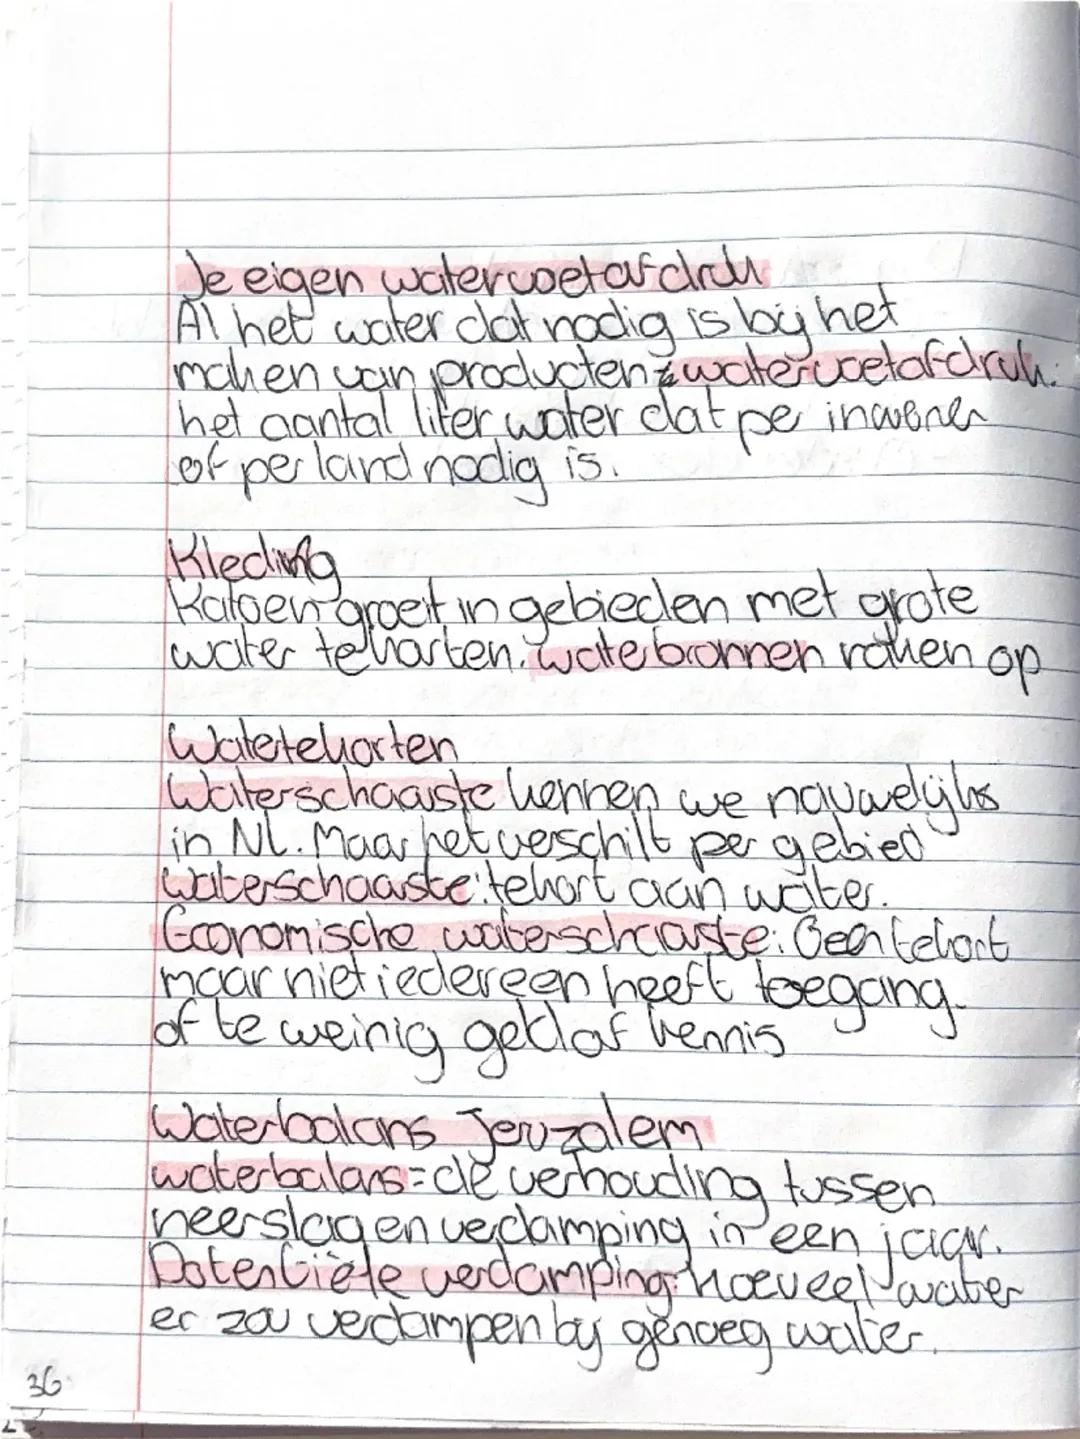 Je eigen watervoetafdruk
Al het water dat nodig is bij het
maken van producten watervoetafdruk:
het aantal liter water dat per inwoner
of per land nodig is.
Kleding
Katoen groeit in gebieden met grote
water tekorten. waterbronnen raken op
Watertekorten
Waterschaarste kennen we nauwelijks
in NL. Maar het verschilt per gebied
waterschaarste: tekort aan water.
Economische waterschaarste: Geen tekort
maar niet iedereen heeft toegang.
of te weinig geld of kennis
Waterbalans Jeruzalem
waterbalans = de verhouding tussen
neerslag en verdamping in een jaar.
Potentiële verdamping: hoeveel water
er zou verdampen bij genoeg water.
36